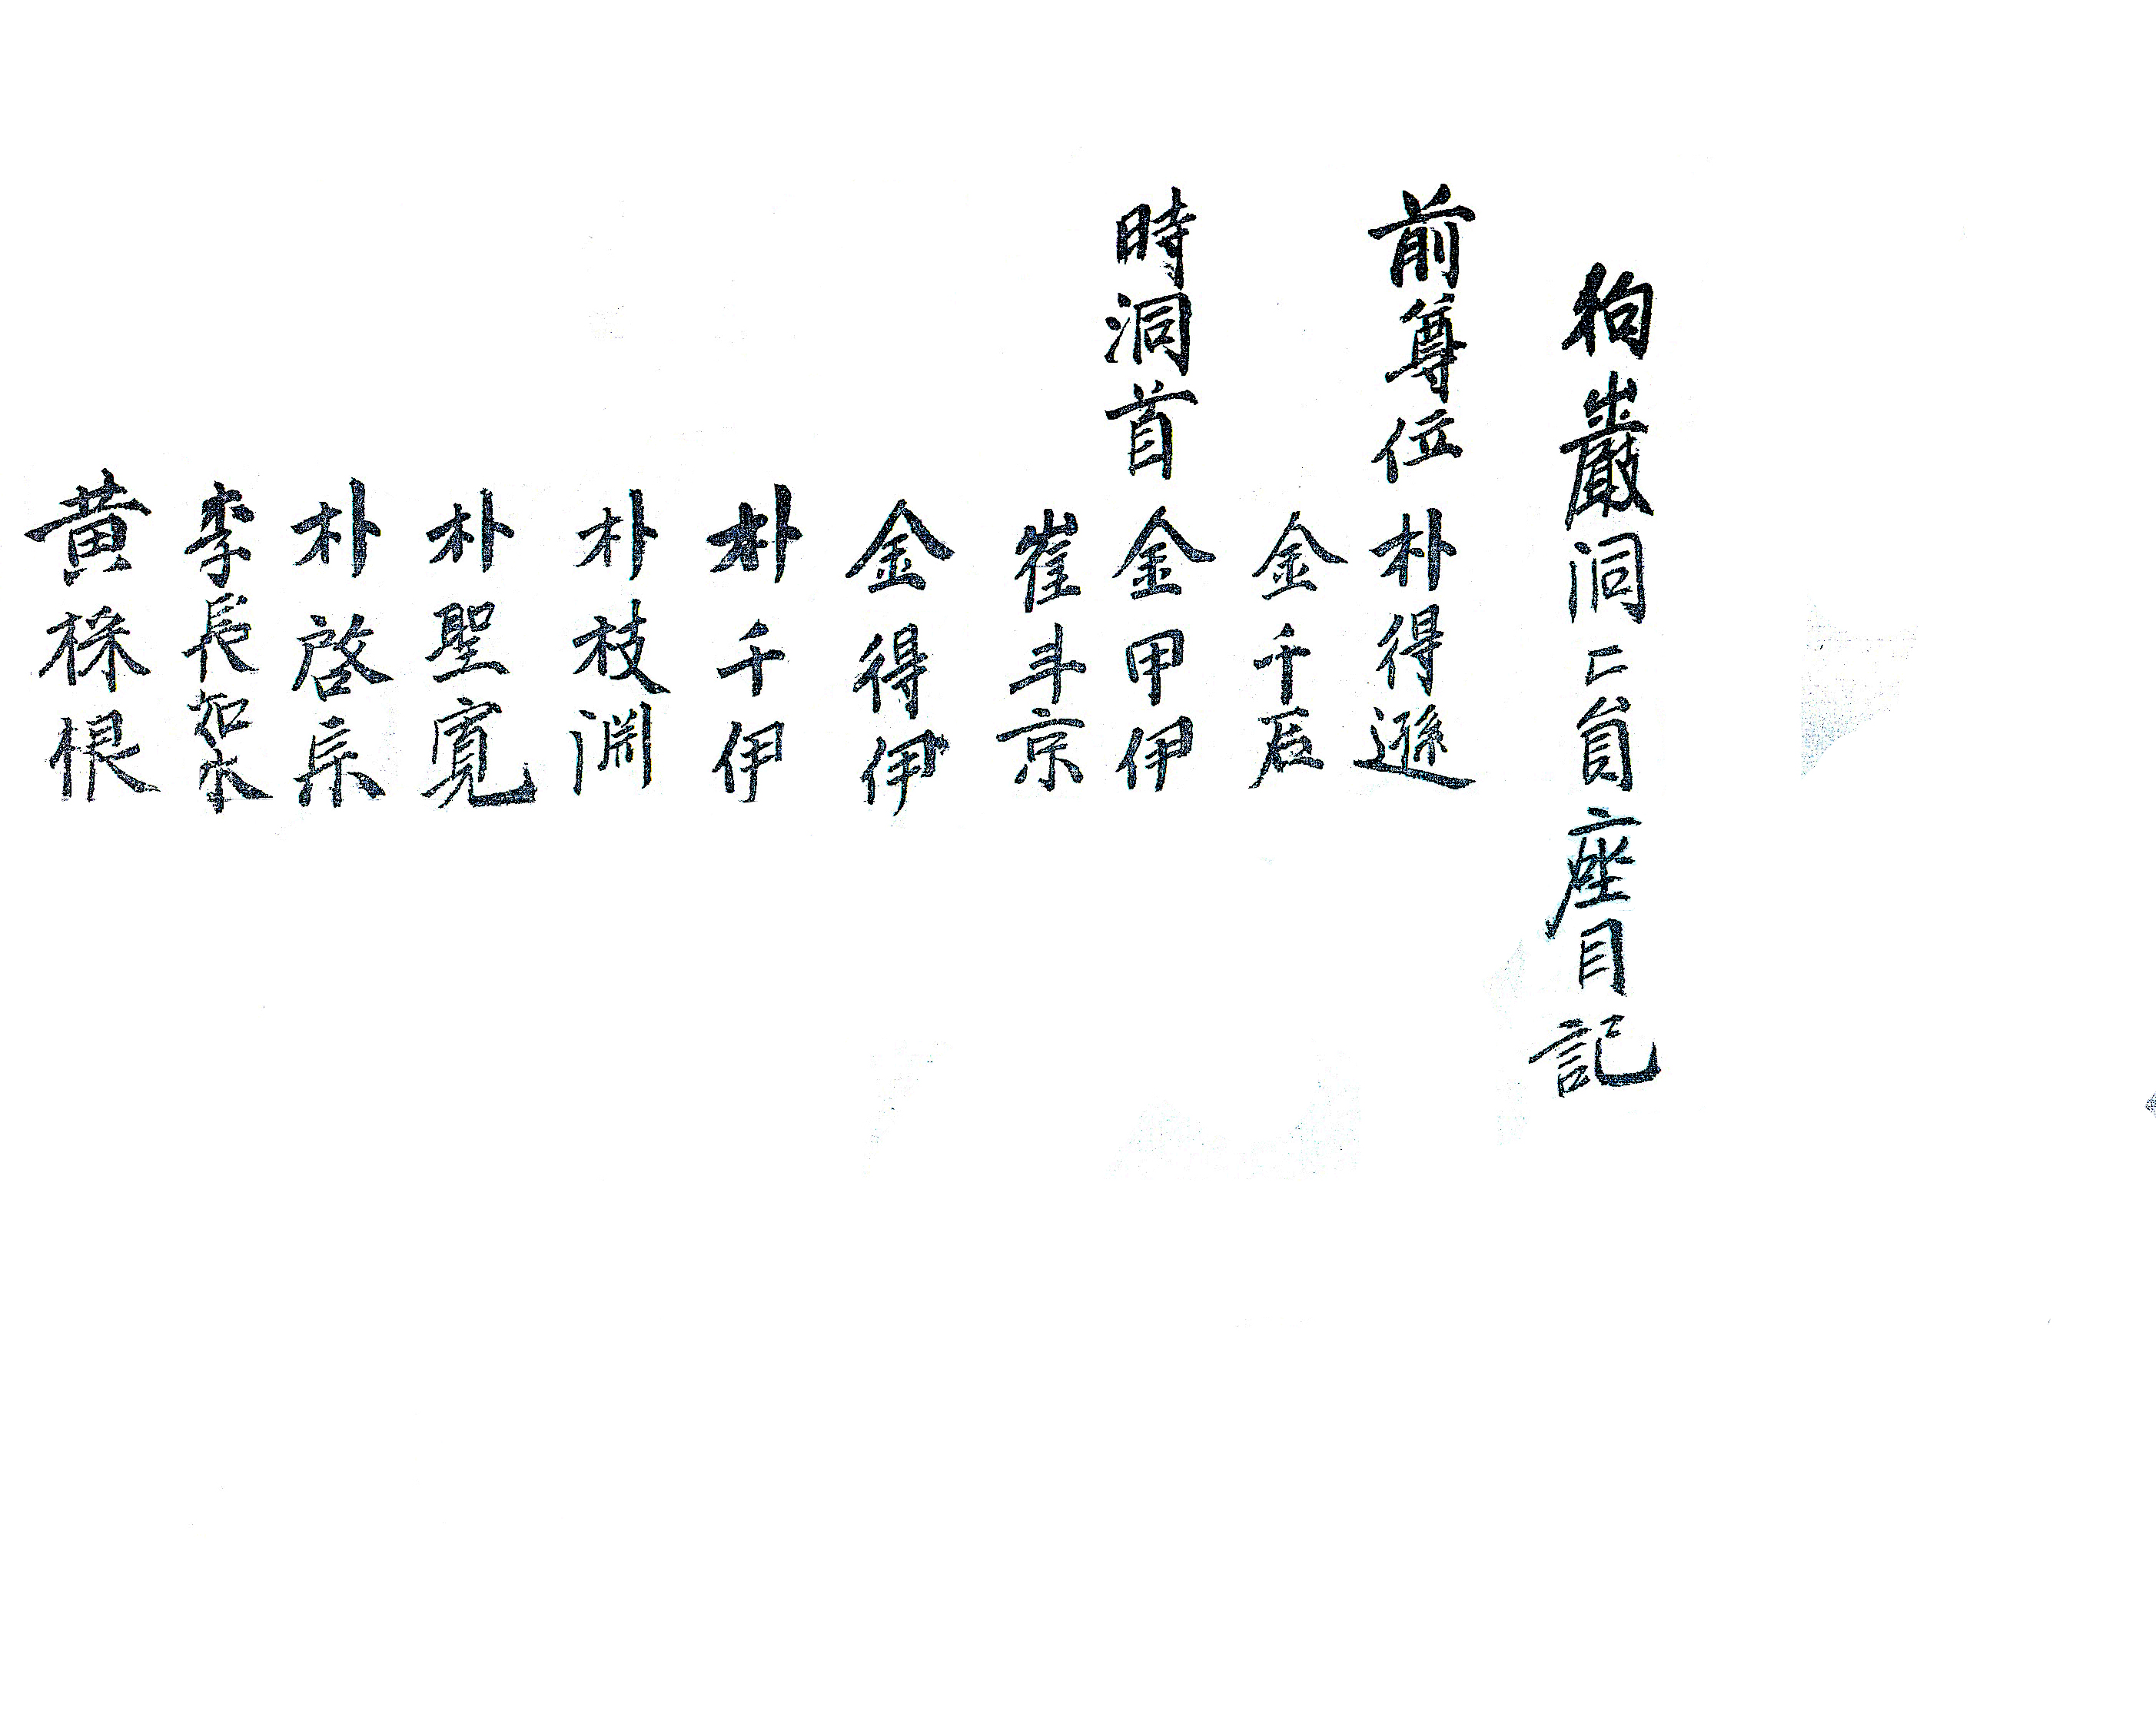 狗巖洞二員座目記
前尊位朴得遜
金千辰
時洞首金甲伊
崔斗京
金得伊
朴千伊
朴枝淵
朴聖寬
朴啓
李長如水
黃根